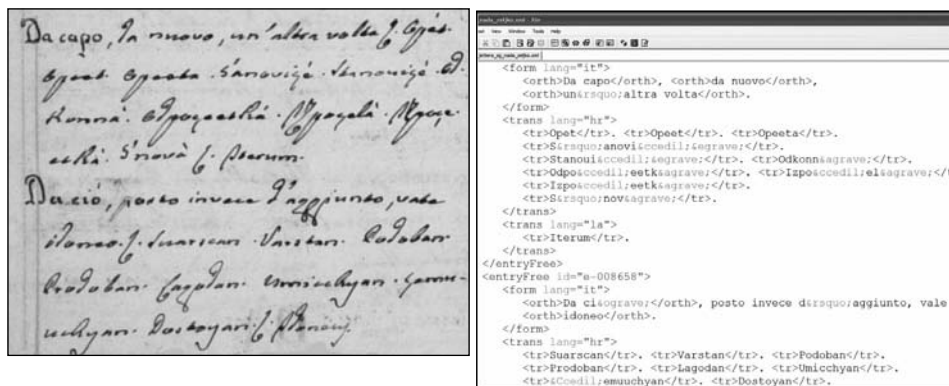 Da capo, da nuovo, un'altra volta ſ. Opet.
Opeet. Opeeta. S'anoviçè. Stanouiçè. Od-
Konnà. Odpoçeetkà. Izpoçelà. Izpoçe-
etkà. S'novà ſ. Iterum.
Da ciò, posto invece d'aggiunto, vale
idoneo. ſ. Suarscan. Varstan. Podoban.
Prodoban. Lagodan. Umicchyan. Çemu-
uchyan. Dostoyan. ſ.
nada_reljko.xml
View Window Tools Help
<form lang="it">
<orth>Da capo</orth>, <orth>da nuovo</orth>,
<orth>un&rsquo;altra volta</orth>.
</form>
<trans lang="hr">
<tr>Opet</tr>. <tr>Opeet</tr>. <tr>Opeeta</tr>.
<tr>S&rsquo;anovi&ccedil;&egrave;</tr>.
<tr>Stanoui&ccedil;&egrave;</tr>. <tr>Odkonn&agrave;</tr>.
<tr>Odpo&ccedil;eetk&agrave;</tr>. <tr>Izpo&ccedil;el&agrave;</t
<tr>Izpo&ccedil;eetk&agrave;</tr>.
<tr>S&rsquo;nov&agrave;</tr>.
</trans>
<trans lang="la">
<tr>Iterum</tr>.
</trans>
</entryFree>
<entryFree id="e-008658">
<form lang="it">
<orth>Da ci&ograve;</orth>, posto invece d&rsquo;aggiunto, vale
<orth>idoneo</orth>.
</form>
<trans lang="hr">
<tr>Suarscan</tr>. <tr>Varstan</tr>. <tr>Podoban</tr>.
<tr>Prodoban</tr>. <tr>Lagodan</tr>. <tr>Umicchyan</tr>.
<tr>&Ccedil;emuuchyan</tr>. <tr>Dostoyan</tr>.